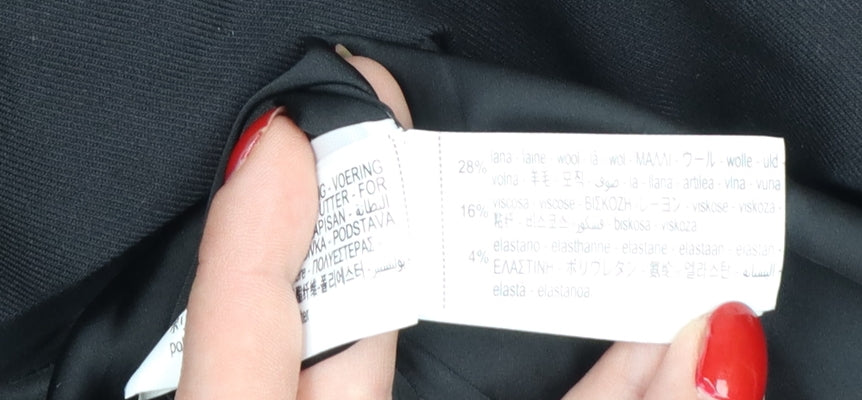 G - VOERING
UTTER - FOR
APISAN - البطانة
VKA - PODSTAVA
ΠΟΛΥΕΣΤΕΡΑΣ -
폴리에스터 - بوليستر
28% lana - laine - wool - lã - wol - ΜΑΛΛΙ - ウール - wolle - uld -
volna - 羊毛 - 모직 - صوف - la - llana - artilea - vlna - vuna
16% viscosa - viscose - ΒΙΣΚΟΖΗ - レーヨン - viskose - viskoza -
비스코스 - فسكوز - biskosa - viskoza
4% elastano - elasthanne - elastane - elastaan - elastan -
ΕΛΑΣΤΙΝΗ - ポリウレタン - 氨纶 - 엘라스탄 -
elastà - elastanoa